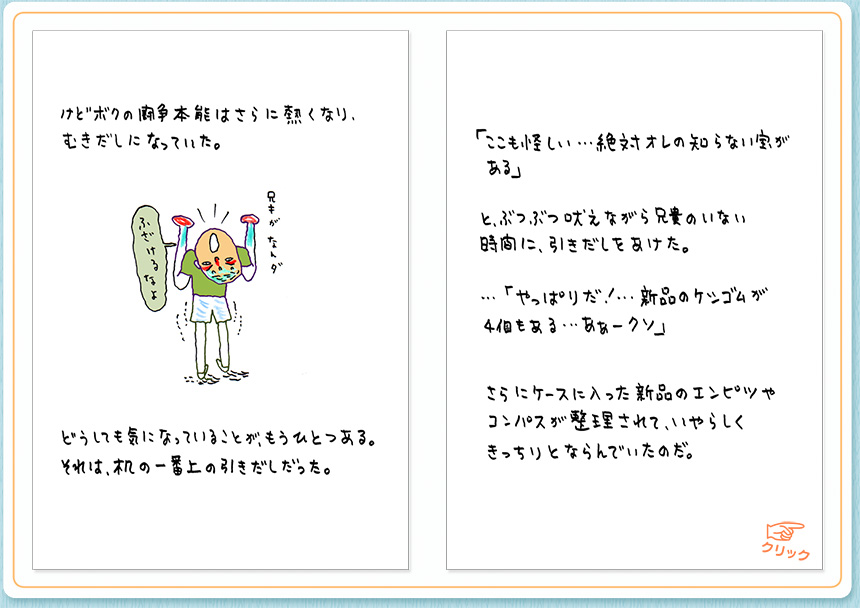 けどボクの闘争本能はさらに熱くなり、
むきだしになっていた。
兄キが なんダ
ふざけるなよ
どうしても気になっていることが、もうひとつある。
それは、机の一番上の引きだしだった。
「ここも怪しい…絶対オレの知らない宝が
ある」
と、ぶつぶつ吠えながら兄貴のいない
時間に、引きだしをあけた。
…「やっぱりだ!…新品のケシゴムが
4個もある…あぁークソ」
さらにケースに入った新品のエンピツや
コンパスが整理されて、いやらしく
きっちりとならんでいたのだ。
クリック